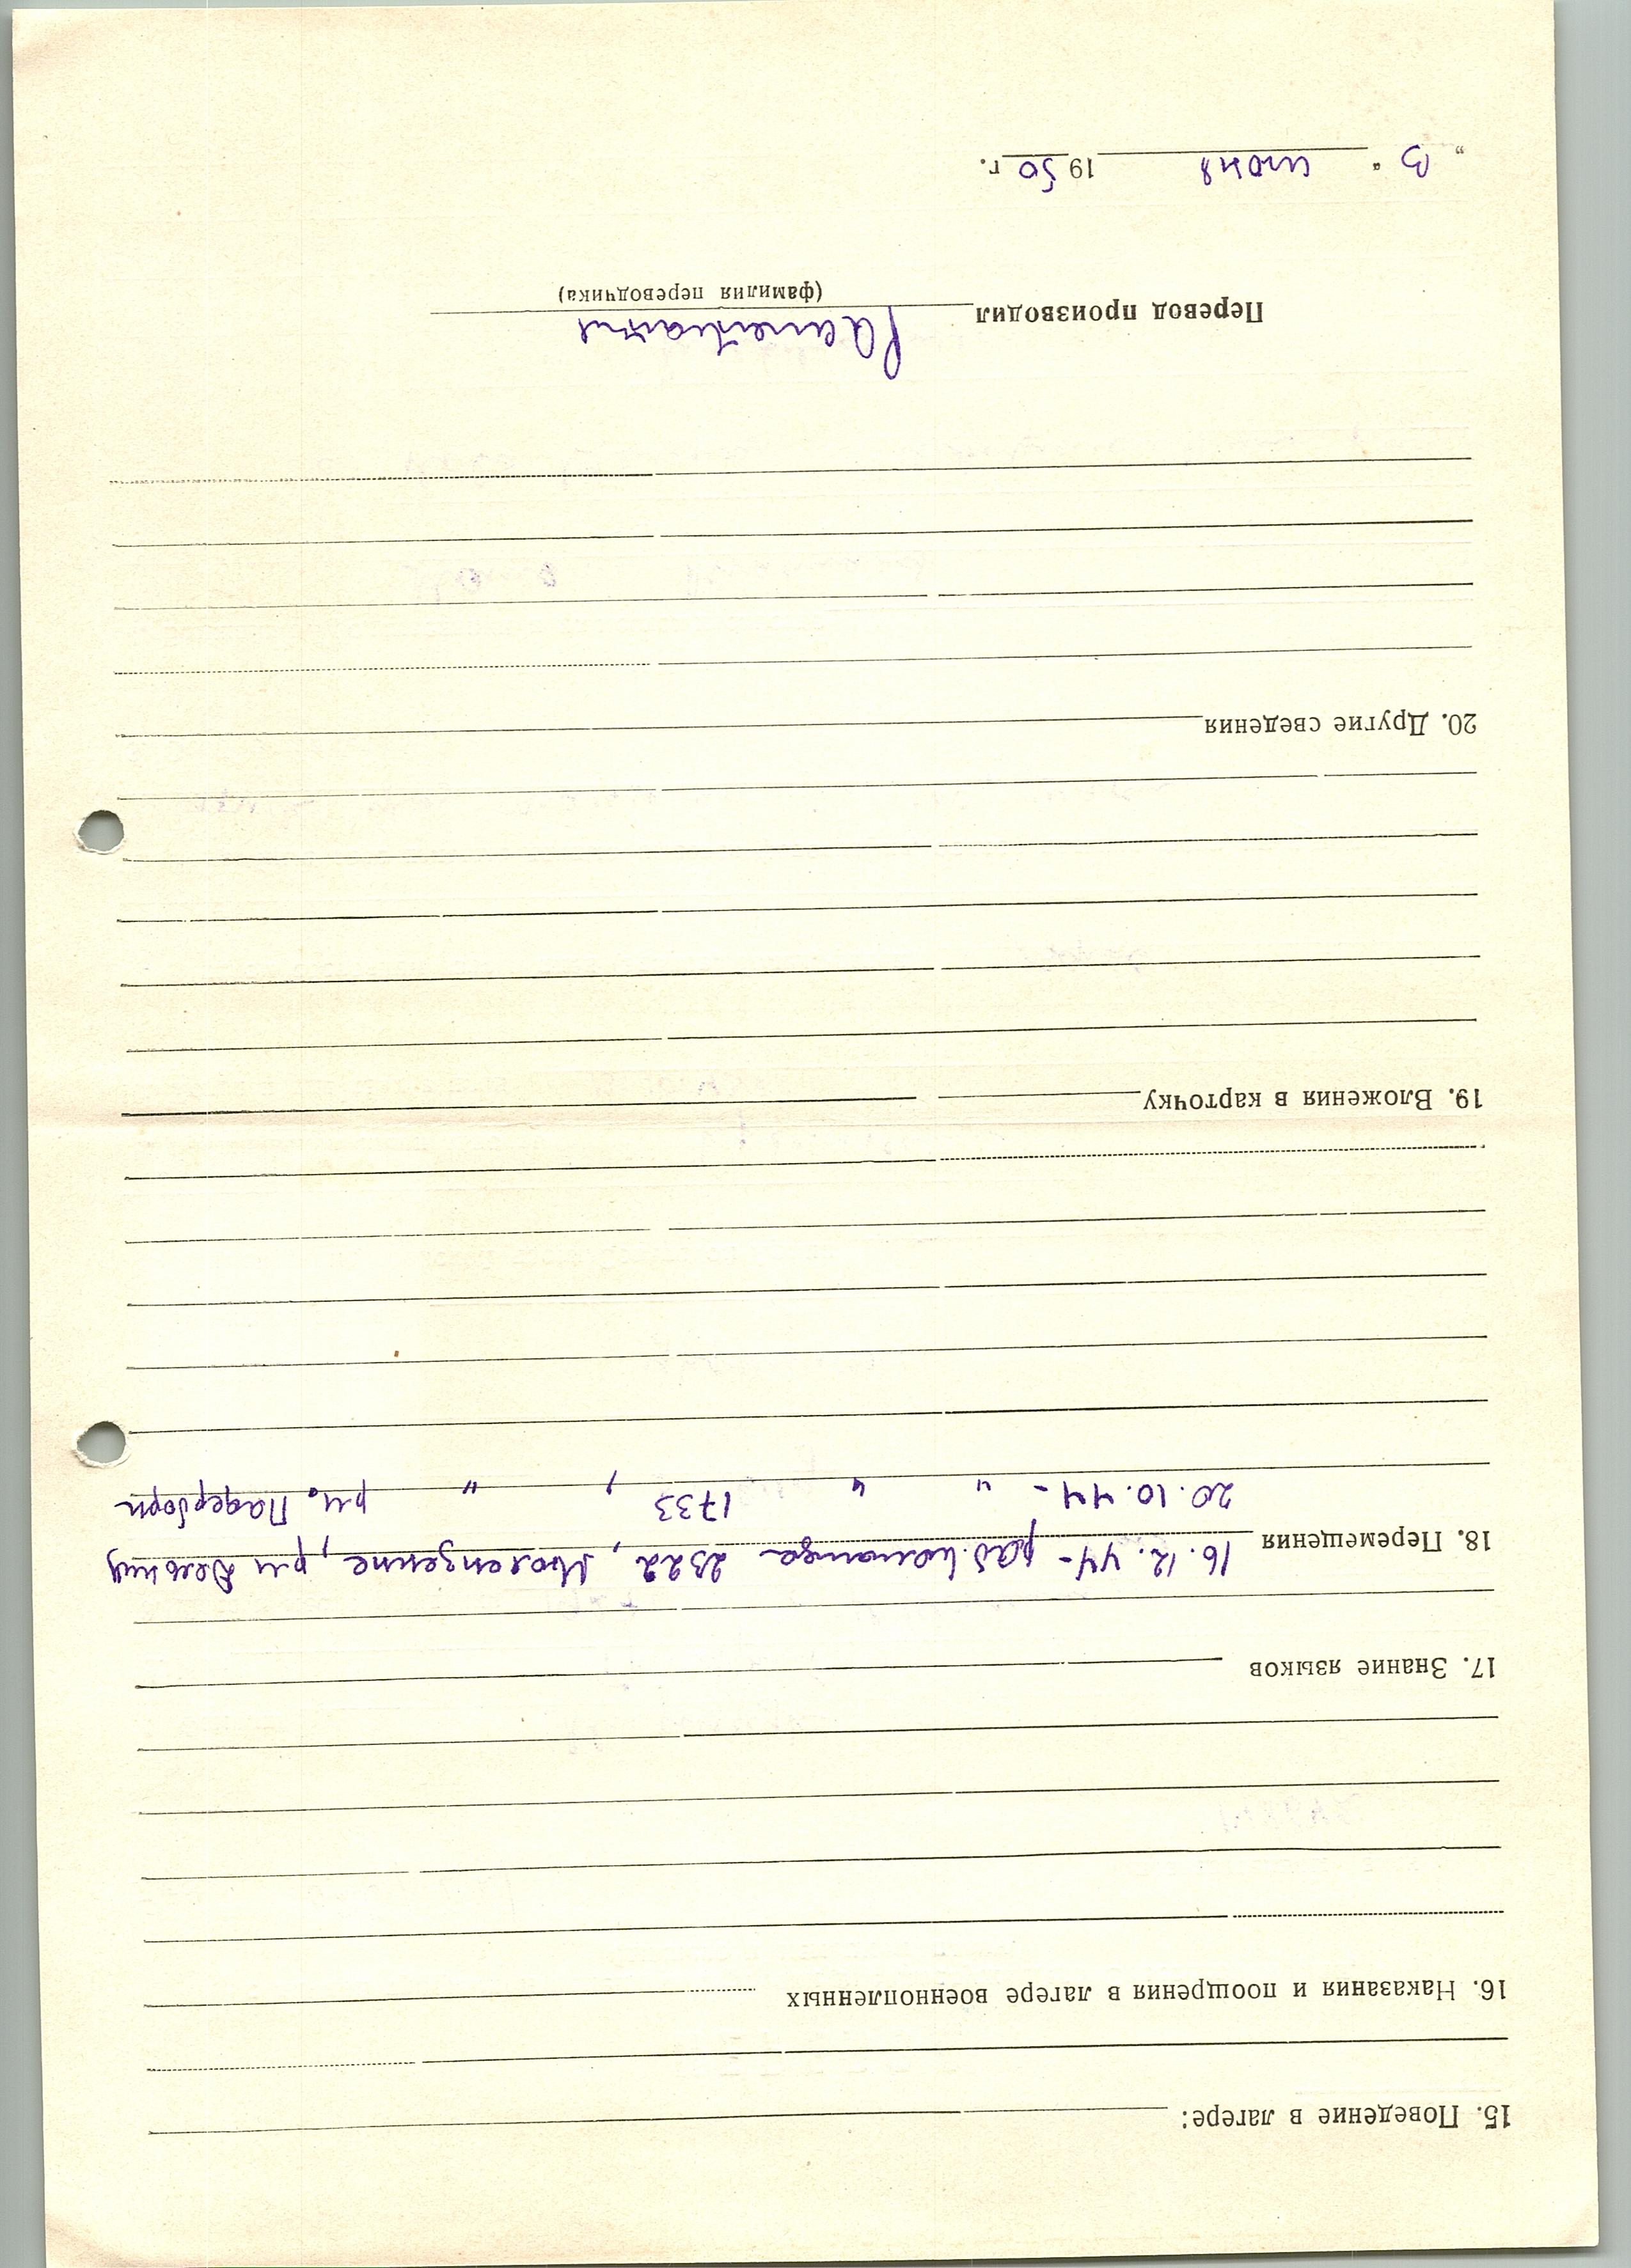 15. Поведение в лагере:
16. Наказания и поощрения в лагере военнопленных
17. Знание языков
18. Перемещения 16.12.44 - раб. команда 2322, р-н
20.10.44 - " " 1733, " р-н. Падерборн
19. Вложения в карточку
20. Другие сведения
Перевод производил
(фамилия переводчика)
„3“ июня 1950 г.